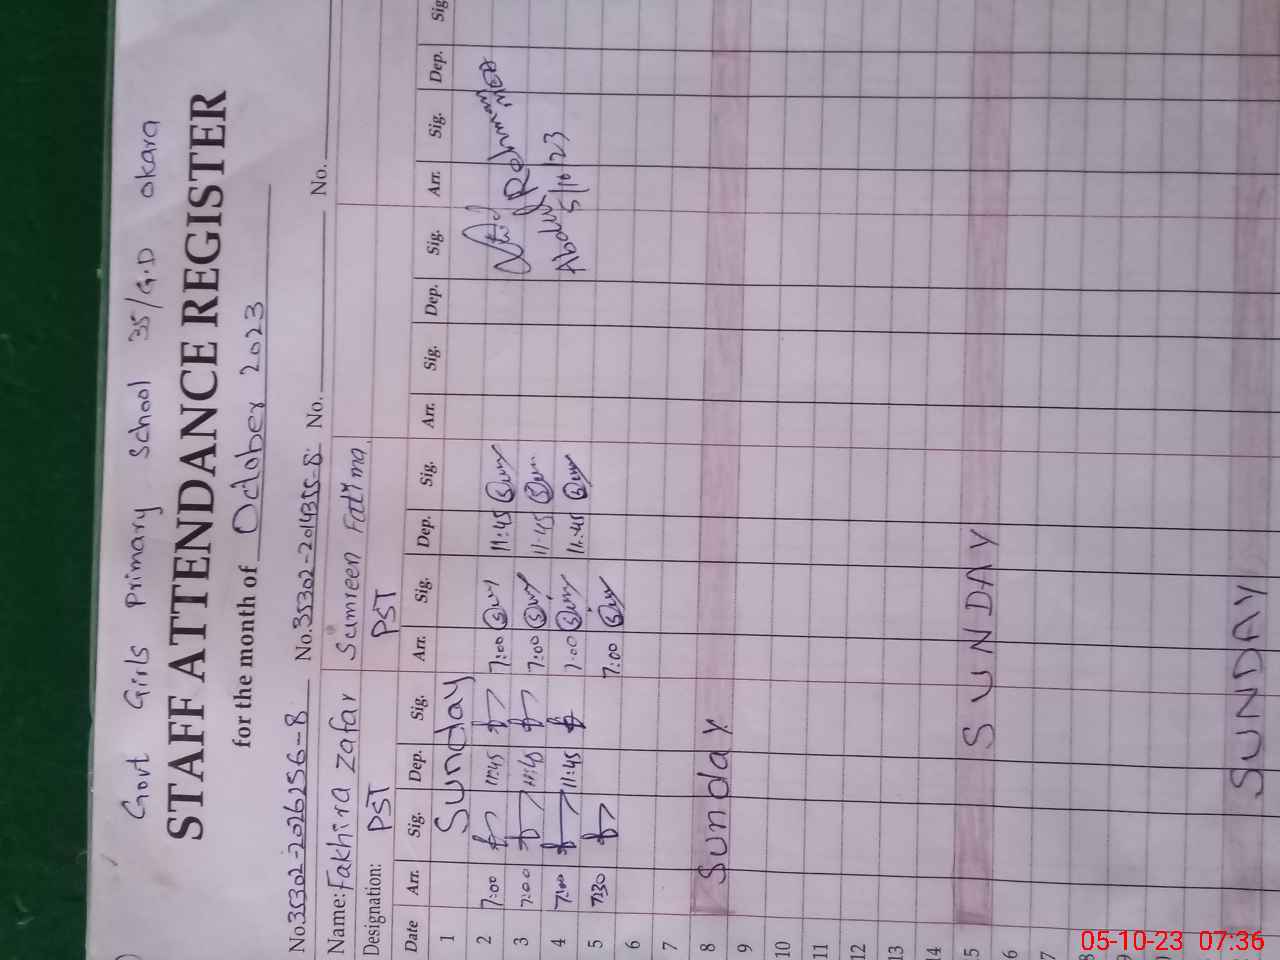 Govt Girls Primary School 35/G.D Okara
STAFF ATTENDANCE REGISTER
for the month of October 2023
No.35302-2026256-8 No.35302-2014355-8 No. No.
Name: Fakhira Zafar Sumreen Fatima
Designation: PST PST
Date Arr. Sig. Dep. Sig. Arr. Sig. Dep. Sig. Arr. Sig. Dep. Sig. Arr. Sig. Dep. Sig
1 Sunday
2 7:00 11:45 7:00 11:45
3 7:00 11:45 7:00 11:45 Rehman
4 7:00 11:45 7:00 11:45 Abdul 5/10/23
5 7:30 7:00
6
7
8 Sunday
9
10
11
12
13
14
15 SUNDAY
6
7
8
9
SUNDAY
05-10-23 07:36